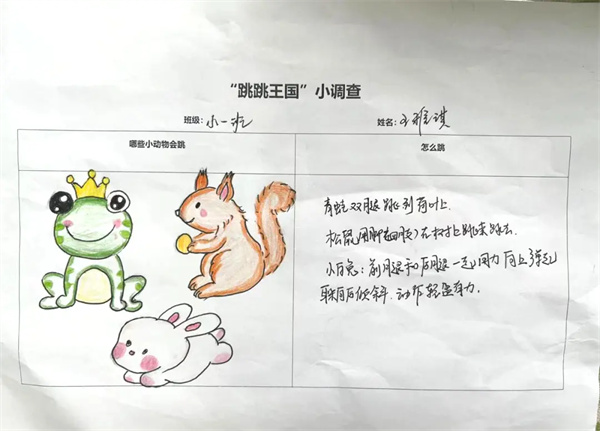 “跳跳王国”小调查
班级：小一班
姓名：王雅琪
哪些小动物会跳
怎么跳
青蛙双腿跳到荷叶上.
松鼠用脚在树上跳来跳去.
小白兔：前腿和后腿一起用力向上弹起
耳朵向后倾斜.动作轻盈有力.